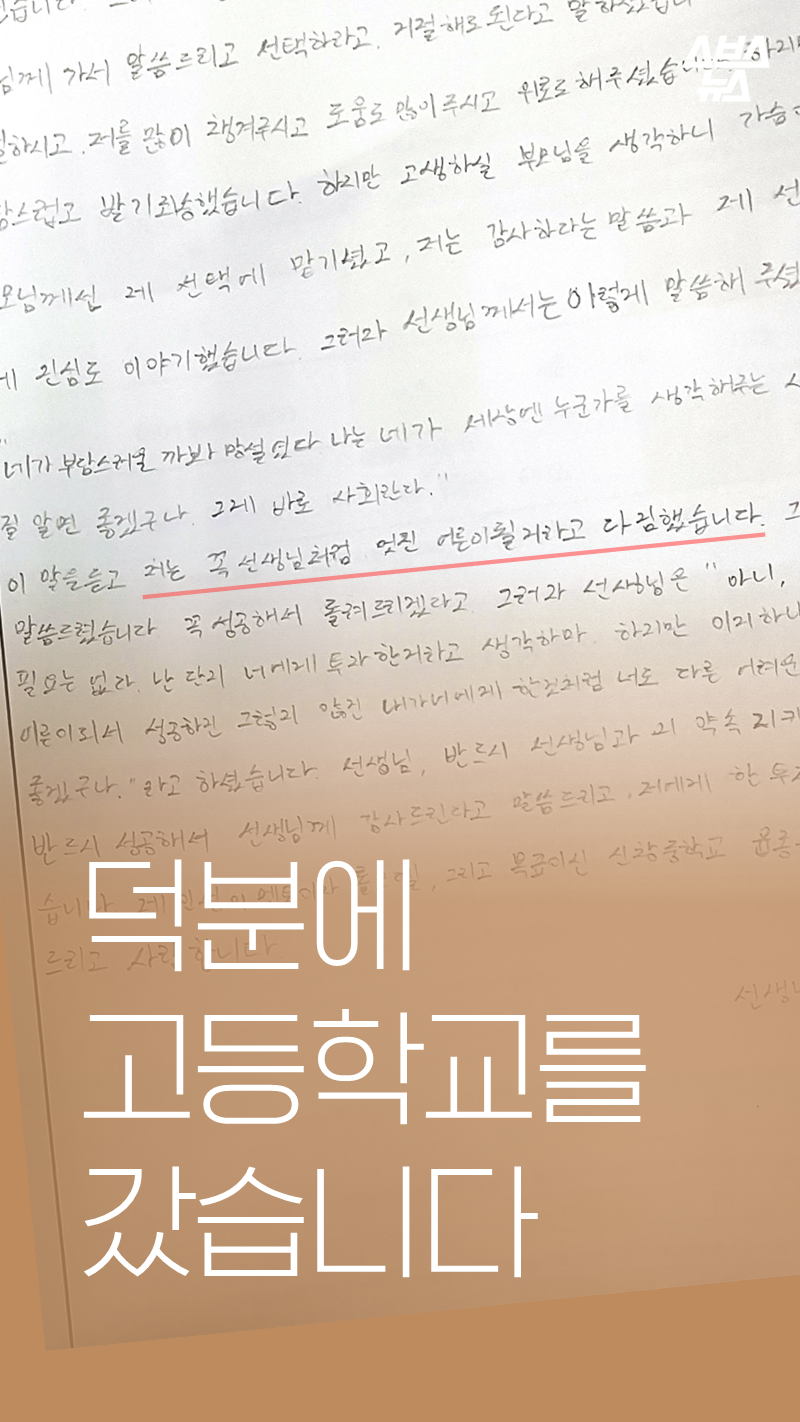 스브스
뉴스
님께 가서 말씀드리고 선택하라고. 거절해도 된다고
하시고. 저를 많이 챙겨주시고 도움도 많이 주시고 위로도 해주셨습니다
스럽고 받기 죄송했습니다. 하지만 고생하실 부모님을 생각하니 가슴
모님께선 제 선택에 맡기셨고, 저는 감사하다는 말씀과 제
진심도 이야기했습니다. 그러자 선생님께서는 이렇게 말씀해 주셨
"네가 부담스러울까봐 망설였다 나는 네가 세상엔 누군가를 생각해주는
걸 알면 좋겠구나. 그게 바로 사회란다."
이 말을 듣고 저는 꼭 선생님처럼 멋진 어른이 될거라고 다짐했습니다. 그
말씀드렸습니다 꼭 성공해서 돌려드리겠다고. 그러자 선생님은 "아니,
필요는 없다. 난 단지 너에게 투자한거라고 생각하마. 하지만 이거 하나
어른이 되서 성공하진 그렇지 않건 내가 너에게 한것처럼 너도 다른 어려운
좋겠구나." 라고 하셨습니다. 선생님, 반드시 선생님과의 약속 지키
반드시 성공해서 선생님께 감사드린다고 말씀드리고, 저에게 한 투자
습니다. 제 인생의 멘토이자 롤모델, 그리고 목표이신 신창중학교
드리고 사랑합니다
덕분에
고등학교를
갔습니다